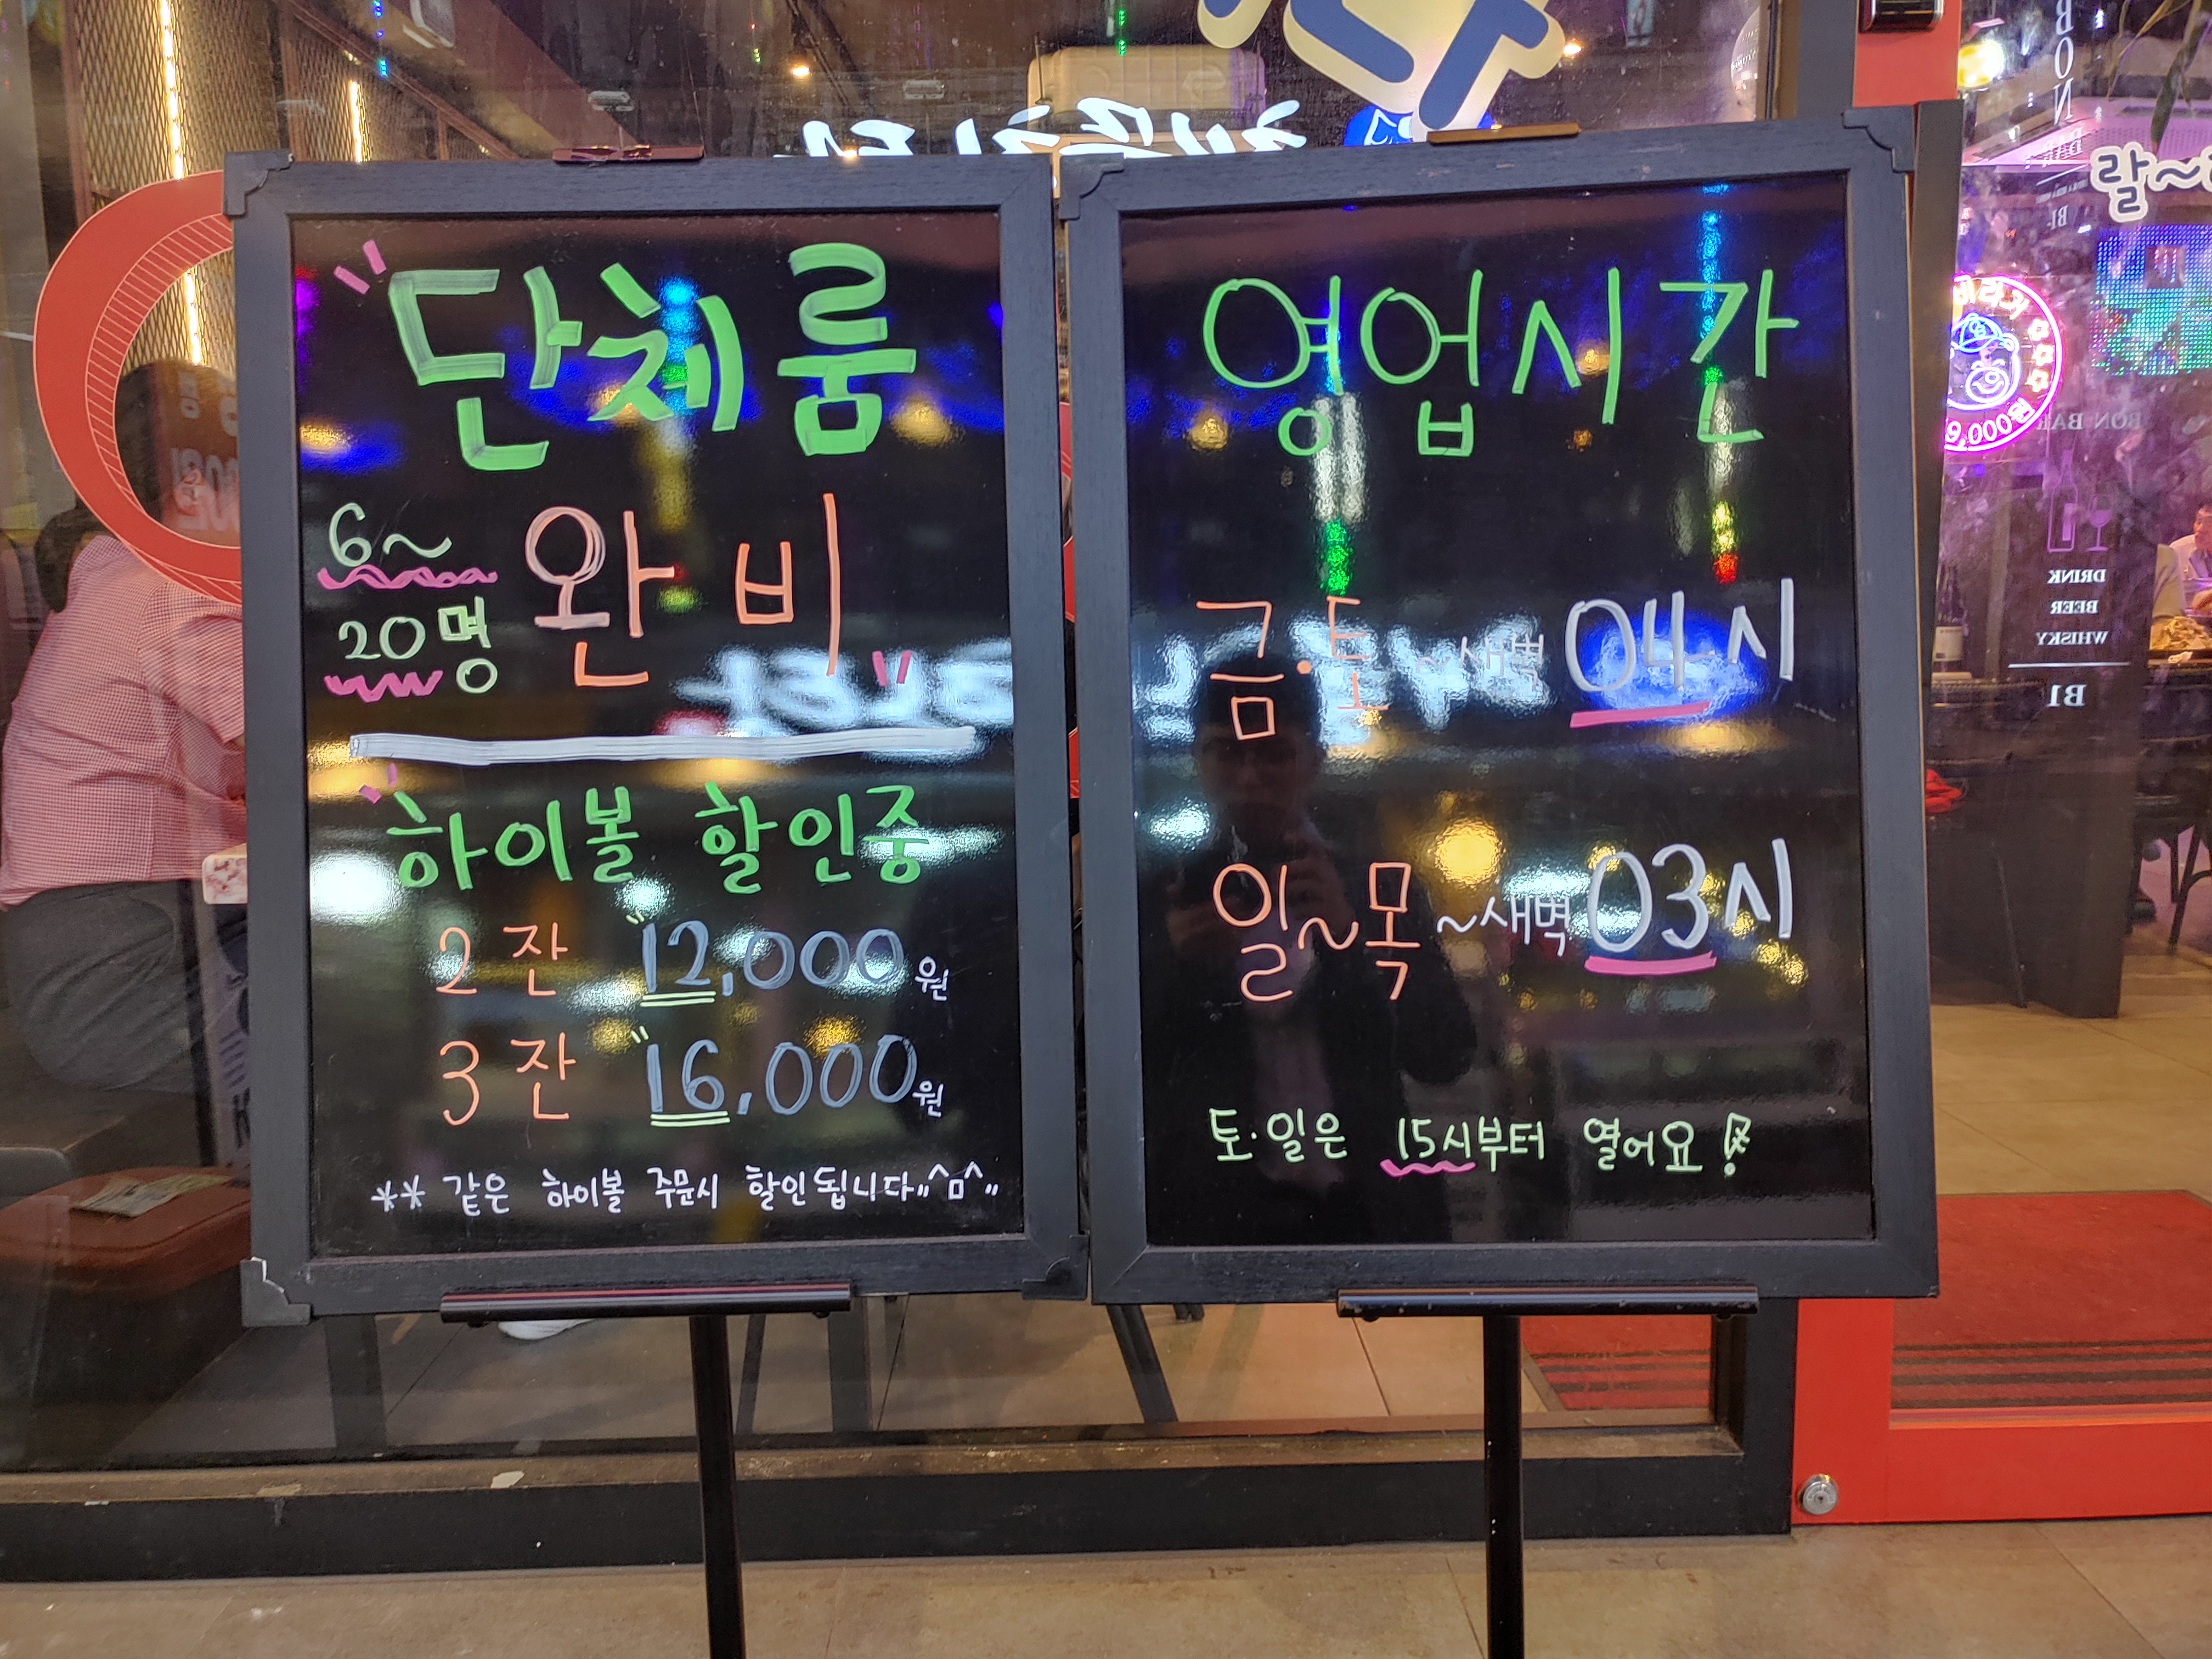 단체룸
6~
20명
완비
하이볼 할인중
2잔 12,000원
3잔 16,000원
** 같은 하이볼 주문시 할인됩니다,,^ㅁ^,,
영업시간
금·토 ~새벽 04시
일~목 ~새벽 03시
토·일은 15시부터 열어요!
랄~
BON BAR
DRINK
BEER
WHISKY
B1